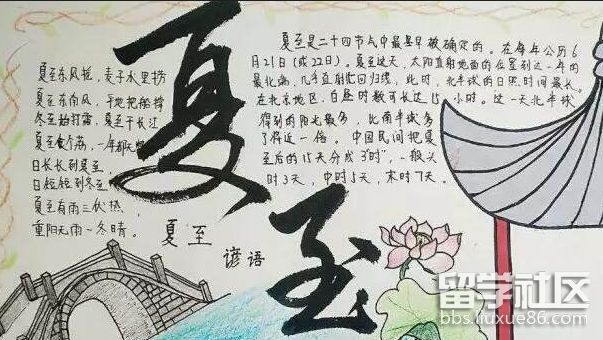 夏至东风摇,麦子水里捞
夏至东南风,平地把船撑
冬至始打霜,夏至干长江
夏至食个荔,一年都无弊
日长长到夏至,
日短短到冬至,
夏至有雨三伏热,
重阳无雨一冬晴。
夏至
谚语
夏
至
夏至是二十四节气中最早被确定的。在每年公历6
月21日(或22日)。夏至这天,太阳直射地面的位置到达一年的
最北端,几乎直射北回归线,此时,北半球的日照时间最长。
在北京地区,白昼时数可长达15小时。这一天北半球
得到的阳光最多,比南半球多
了将近一倍。中国民间把夏
至后的15天分成3"时",一般头
时3天,中时5天,末时7天。
留学社区
bbs.liuxue86.com